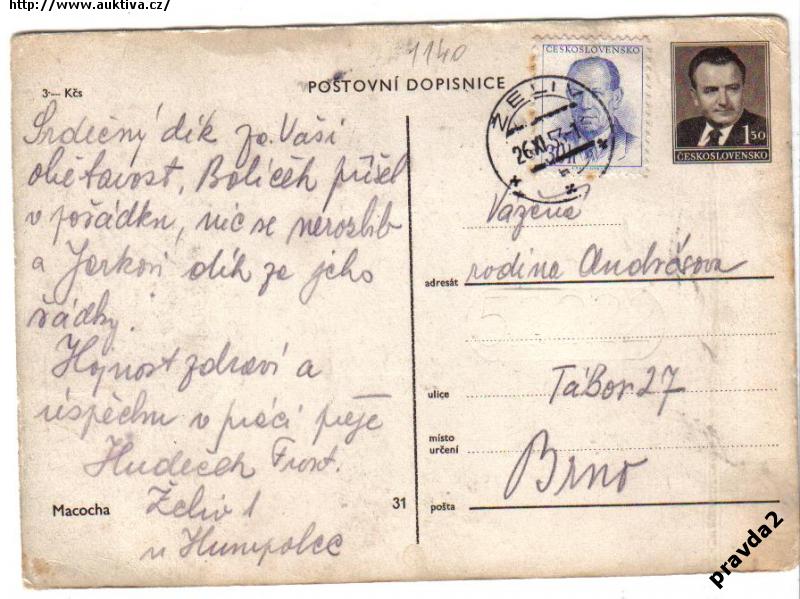 http://www.auktiva.cz/
1140
3·— Kčs
POŠTOVNÍ DOPISNICE
ČESKOSLOVENSKO
1 50
ČESKOSLOVENSKO
ŽELIV
26.XI.
Srdečný dík za Vaši
obětavost, Balíček přišel
v pořádku, nic se nerozbib
a Jarkovi dík za jeho
řádky.
Hojnost zdraví a
úspěchu v práci přeje
Hudeček
Želiv 1
u Humpolce
Macocha
31
Vážená
adresát rodina Andrásova
ulice Tábor 27
místo
určení Brno
pošta
pravda2